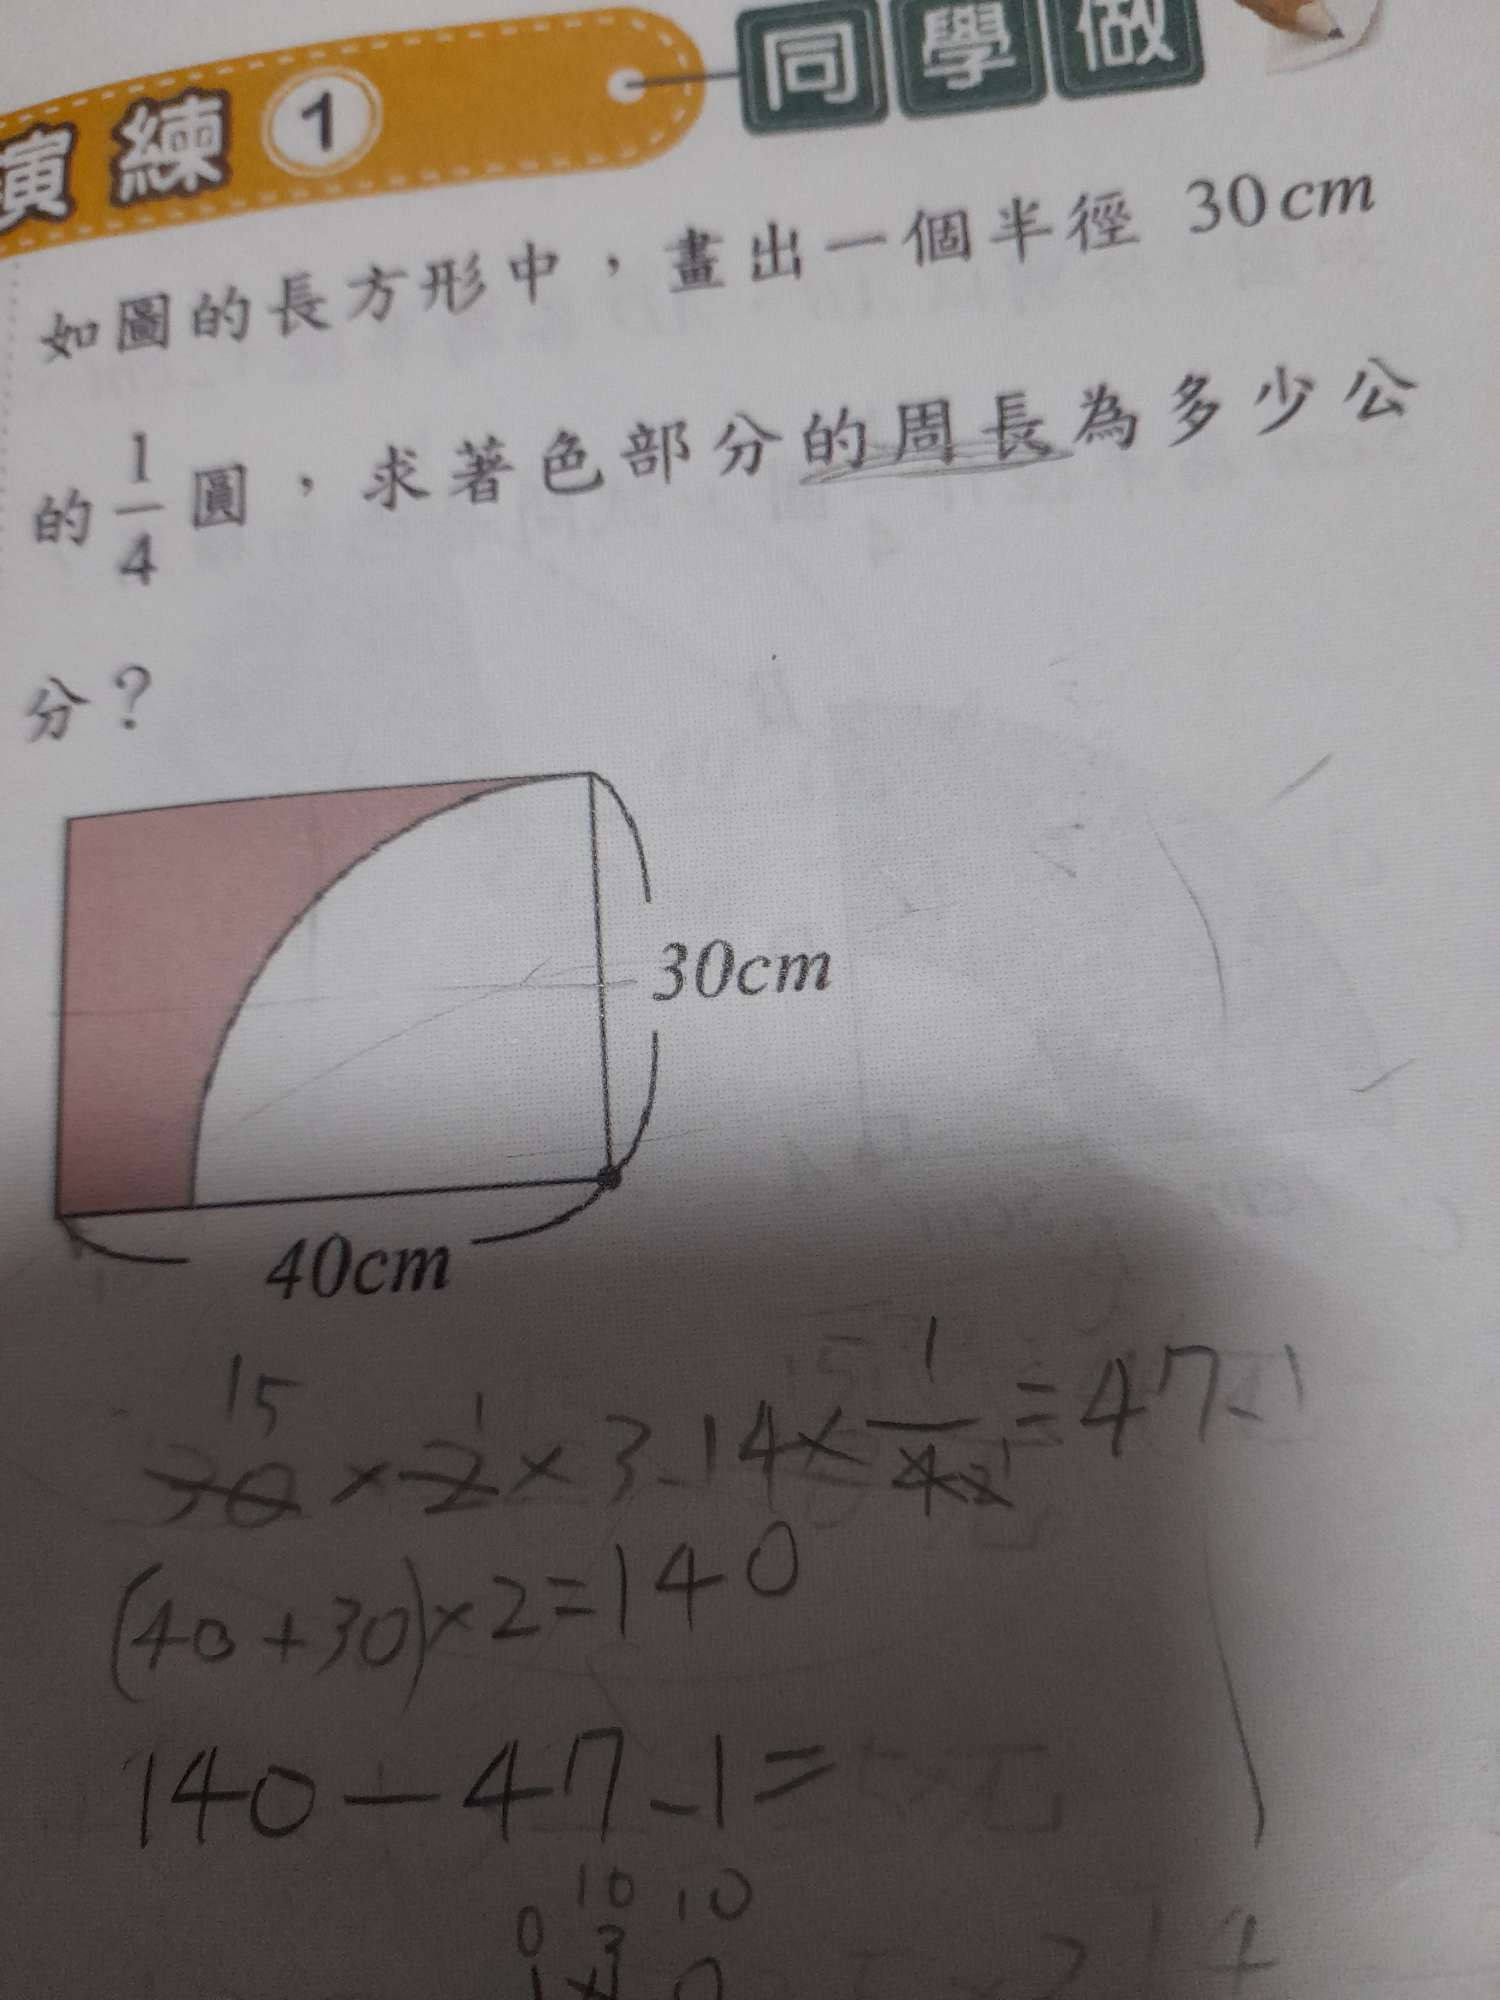 演練 1 同學做
如圖的長方形中，畫出一個半徑 30cm
的 1/4 圓，求著色部分的周長為多少公
分？
30cm
40cm
15 1 1
30 × 2 × 3.14 × 1/4 = 47.1
2 1
(40+30)×2=140
140-47.1=
10 10
0 3